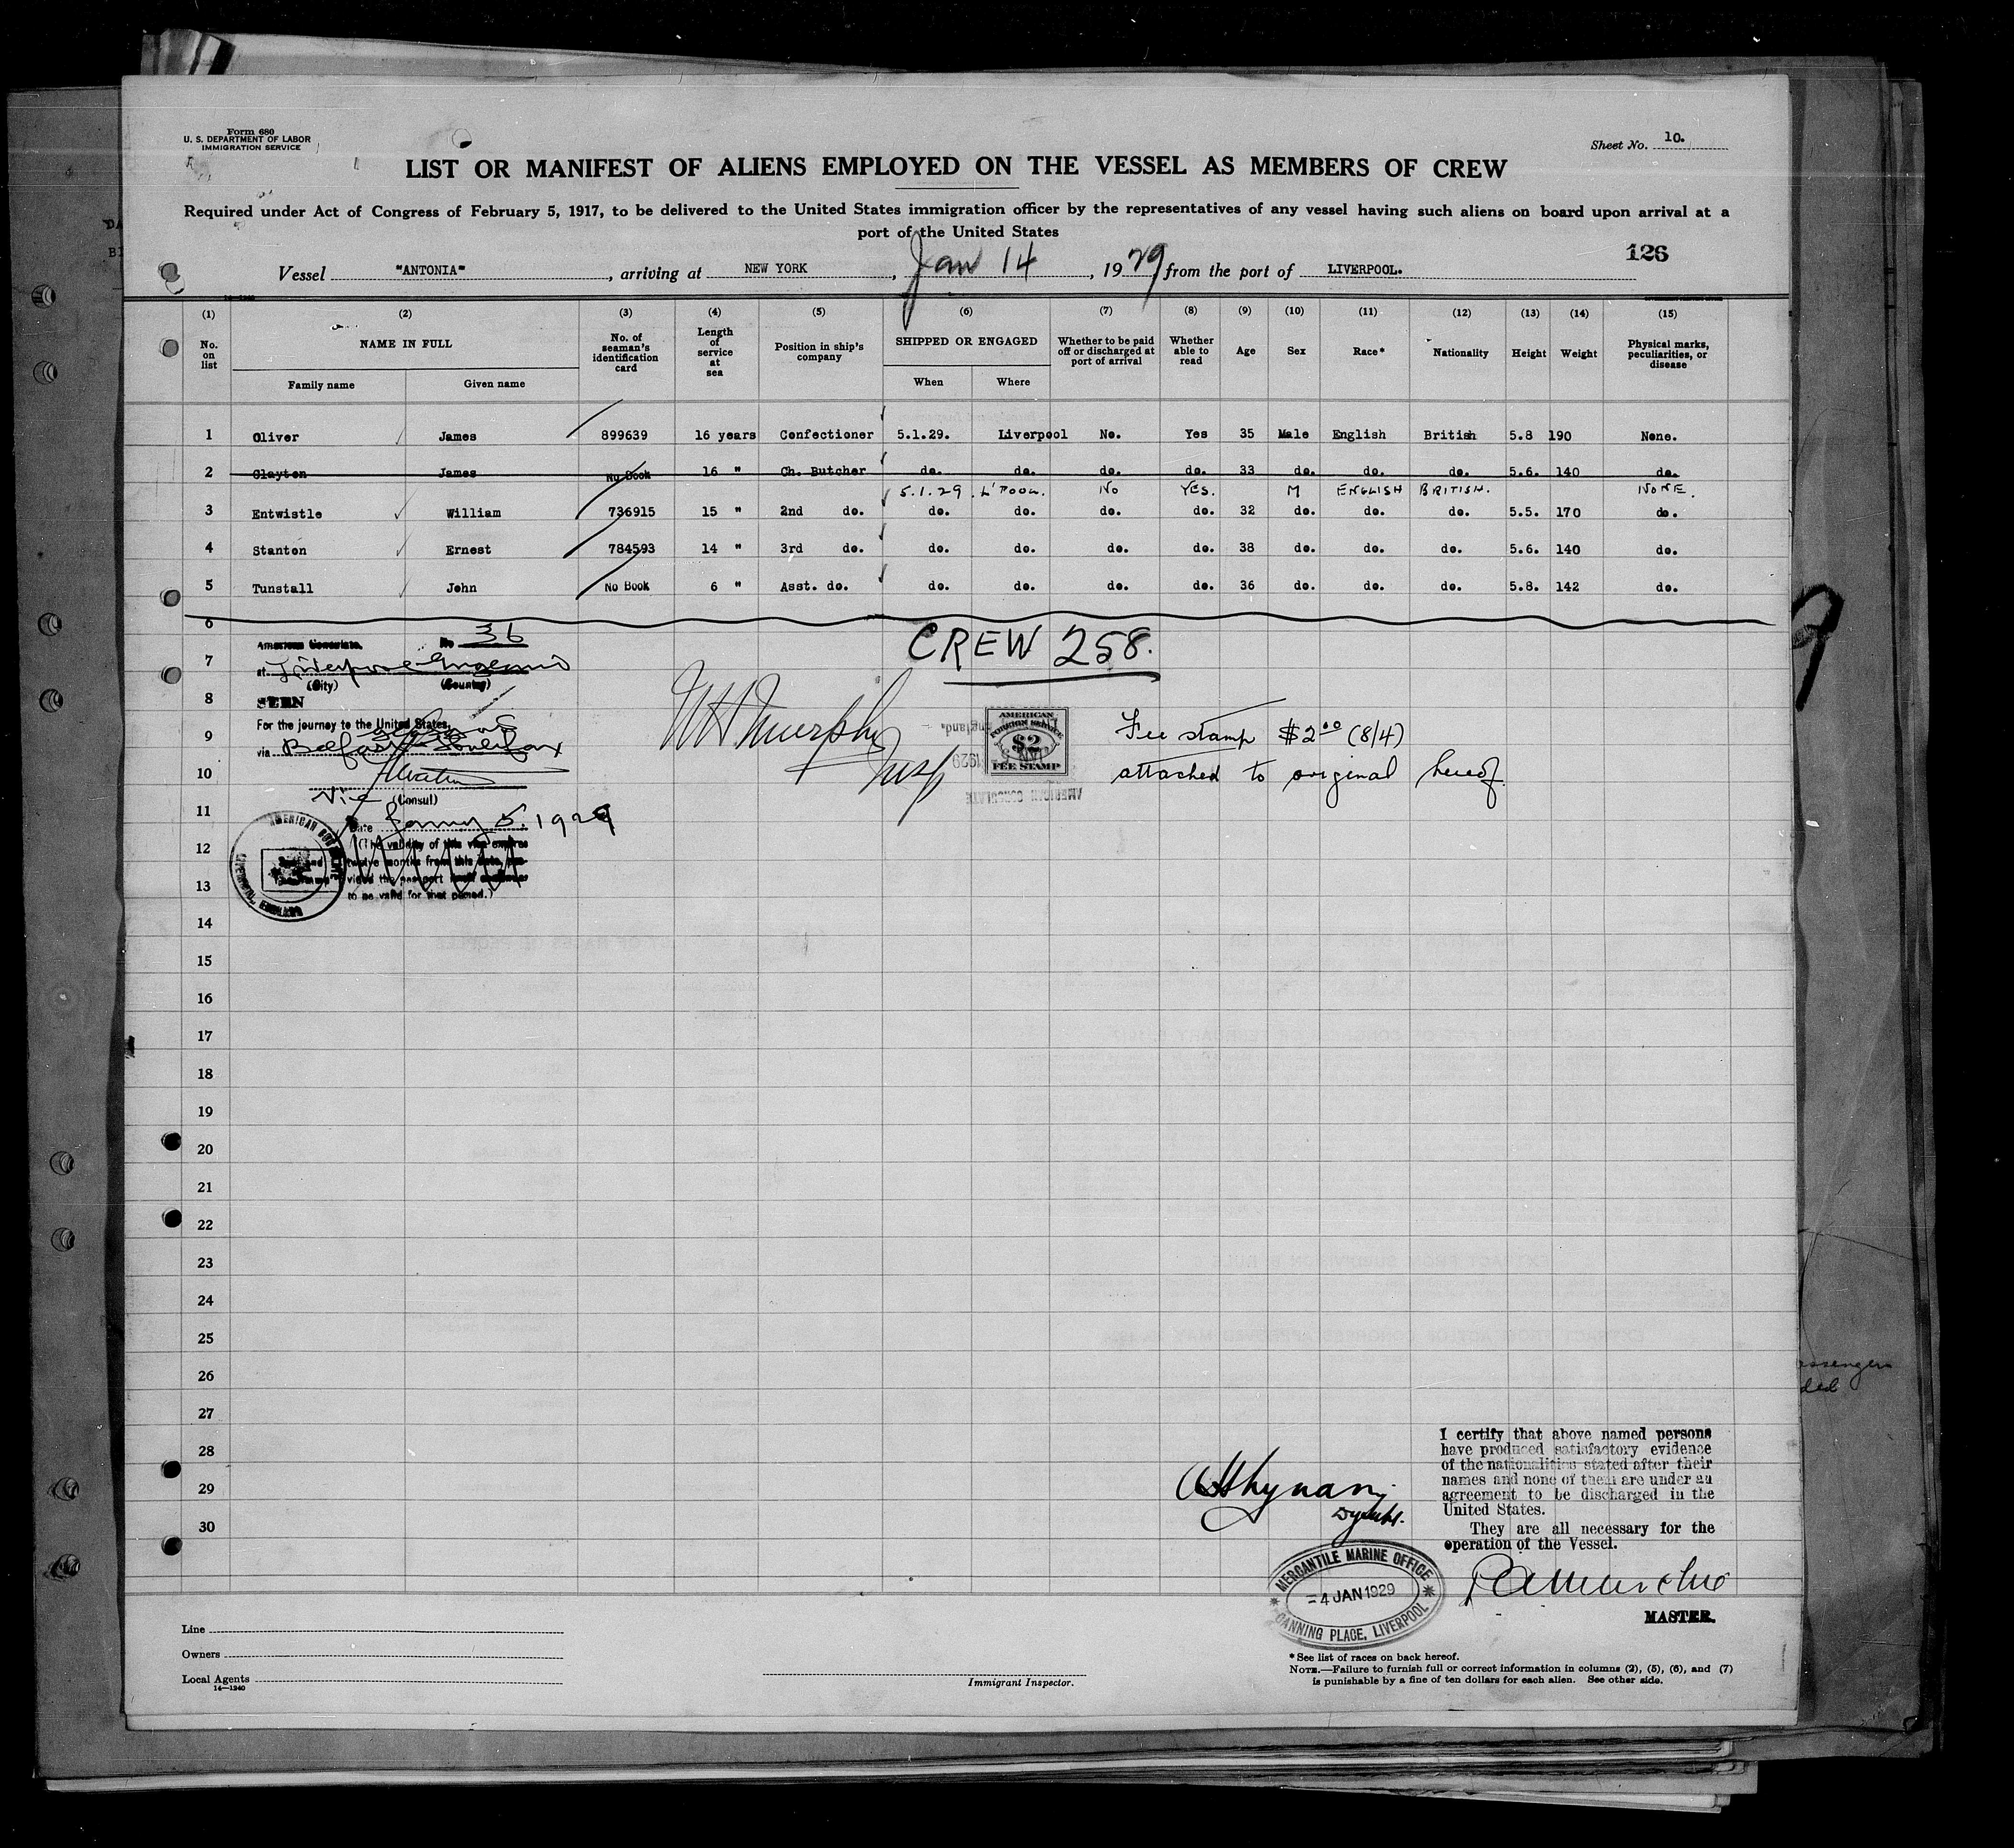 Form 680
U. S. DEPARTMENT OF LABOR
IMMIGRATION SERVICE
Sheet No. 10.
LIST OR MANIFEST OF ALIENS EMPLOYED ON THE VESSEL AS MEMBERS OF CREW
Required under Act of Congress of February 5, 1917, to be delivered to the United States immigration officer by the representatives of any vessel having such aliens on board upon arrival at a
port of the United States
126
Vessel "ANTONIA", arriving at NEW YORK, Jan 14, 1929 from the port of LIVERPOOL.
(1) (2) (3) (4) (5) (6) (7) (8) (9) (10) (11) (12) (13) (14) (15)
No. on list NAME IN FULL Family name Given name No. of seaman's identification card Length of service at sea Position in ship's company SHIPPED OR ENGAGED When Where Whether to be paid off or discharged at port of arrival Whether able to read Age Sex Race* Nationality Height Weight Physical marks, peculiarities, or disease
1 Oliver James 899639 16 years Confectioner 5.1.29. Liverpool No. Yes 35 Male English British 5.8 190 None.
2 Clayton James No Book 16 " Ch. Butcher do. do. do. do. 33 do. do. do. 5.6. 140 do.
5.1.29. L'POOL. NO YES. M ENGLISH BRITISH. NONE.
3 Entwistle William 736915 15 " 2nd do. do. do. do. do. 32 do. do. do. 5.5. 170 do.
4 Stanton Ernest 784593 14 " 3rd do. do. do. do. do. 38 do. do. do. 5.6. 140 do.
5 Tunstall John No Book 6 " Asst. do. do. do. do. do. 36 do. do. do. 5.8. 142 do.
6
American Consulate. No 36
CREW 258.
7
at Liverpool England
(City) (Country)
8
SEEN
For the journey to the United States.
9
via Belfast Halifax
WH Murphy
Insp
AMERICAN
FOREIGN SERVICE
$2
FEE STAMP
AMERICAN CONSULATE
Fee stamp $2.00 (8/4)
attached to original hereof.
10
Vice (Consul)
11
Date January 5. 1929
12
(The validity of this visa expires
twelve months from this date, pro-
13
vided the passport
to be valid for that period.)
AMERICAN
LIVERPOOL, ENGLAND
14
15
16
17
18
19
20
21
22
23
24
25
26
27
28
29
30
I certify that above named persons
have produced satisfactory evidence
of the nationalities stated after their
names and none of them are under an
agreement to be discharged in the
United States.
They are all necessary for the
operation of the Vessel.
MASTER.
MERCANTILE MARINE OFFICE
4 JAN 1929
CANNING PLACE, LIVERPOOL
Line
Owners
Local Agents
14—1240
Immigrant Inspector.
*See list of races on back hereof.
NOTE.—Failure to furnish full or correct information in columns (2), (5), (6), and (7)
is punishable by a fine of ten dollars for each alien. See other side.